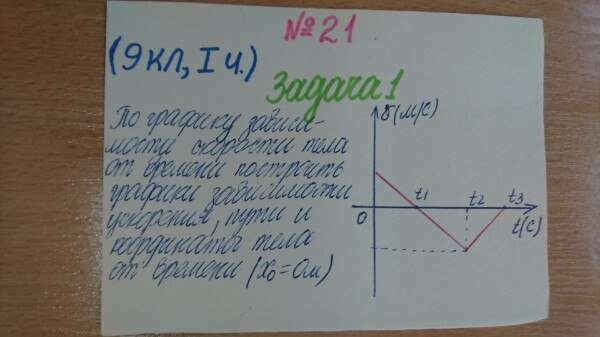 №21
(9 кл, I ч.)
Задача 1
По графику зависи-
мости скорости тела
от времени построить
графики зависимости
ускорения, пути и
координаты тела
от времени (x₀=0м)
υ(м/с)
t1
t2
t3
0
t(c)